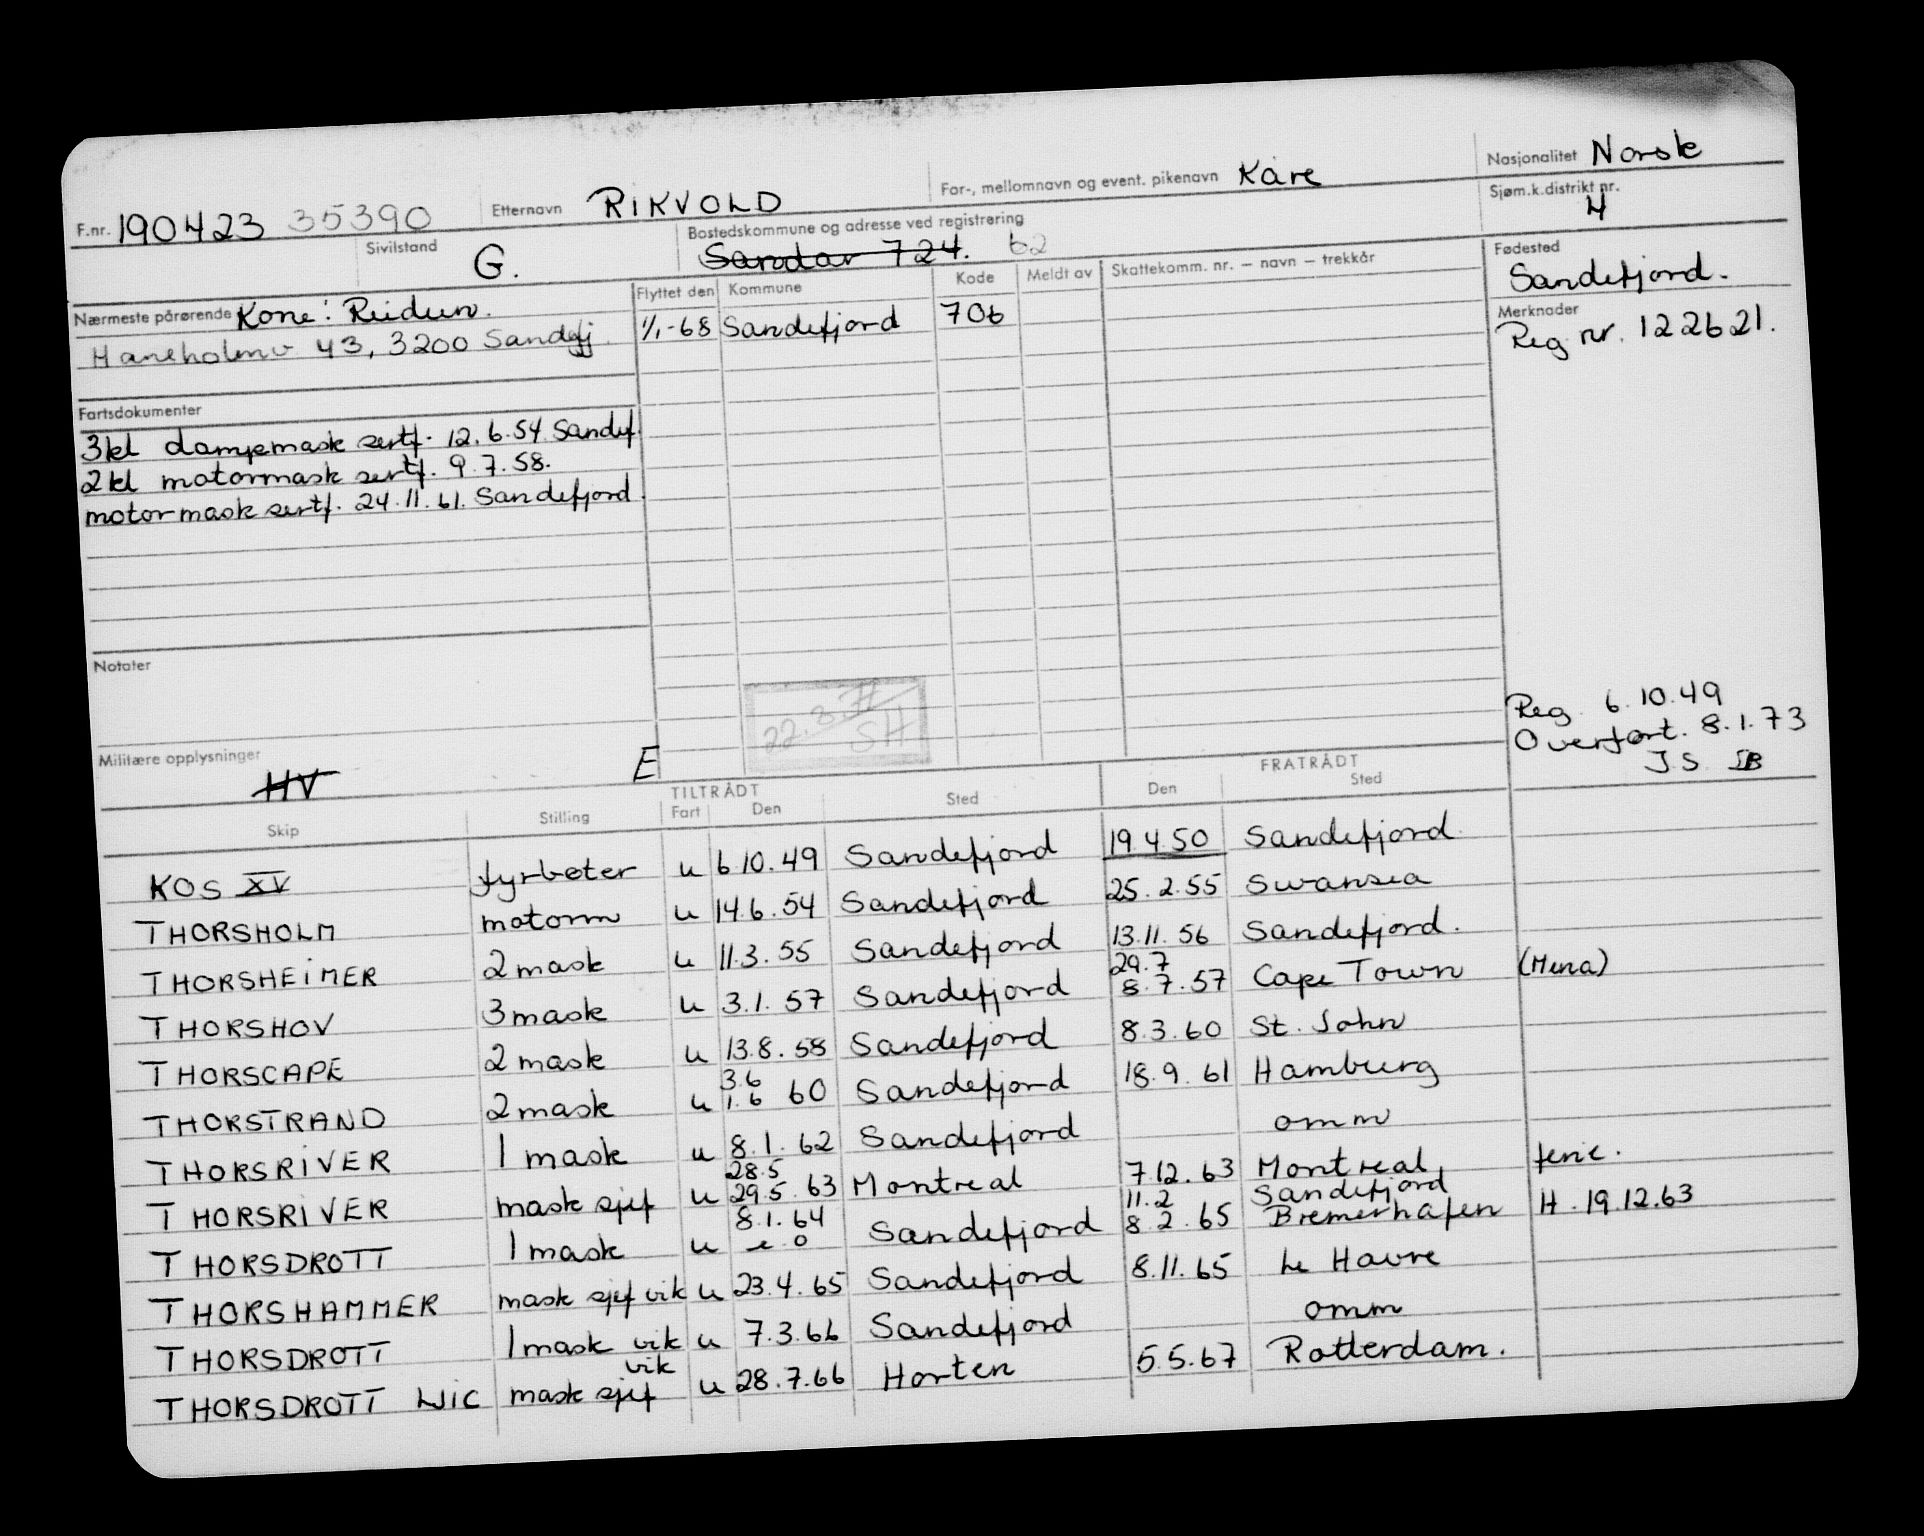 F.nr. 190423 35390 Etternavn RIKVOLD For-, mellomnavn og event. pikenavn Kåre Nasjonalitet Norsk
Sivilstand G. Bostedskommune og adresse ved registrering Sandar 724. 62 Sjøm.k.distrikt nr. 4
Nærmeste pårørende Kone: Reidun.
Haneholmv 43, 3200 Sandefj.
Flyttet den Kommune Kode Meldt av Skattekomm. nr. – navn – trekkår
1/1-68 Sandefjord 706
Fødested
Sandefjord.
Merknader
Reg. nr. 122621.
Fartsdokumenter
3kl dampmask sertf. 12.6.54 Sandef.
2kl motormask sertf. 9.7.58.
motormask sertf. 24.11.61. Sandefjord.
Notater
22.3.77
SH
Reg. 6.10.49
Overført. 8.1.73
J.S. SB
Militære opplysninger
HV E
TILTRÅDT FRATRÅDT
Skip Stilling Fart Den Sted Den Sted
KOS XV fyrbøter u 6.10.49 Sandefjord 19.4.50 Sandefjord.
THORSHOLM motorm u 14.6.54 Sandefjord 25.2.55 Swansea
THORSHEIMER 2 mask u 11.3.55 Sandefjord 13.11.56 Sandefjord.
29.7
THORSHOV 3 mask u 3.1.57 Sandefjord 8.7.57 Cape Town
THORSCAPE 2 mask u 13.8.58 Sandefjord 8.3.60 St. John
3.6
THORSTRAND 2 mask u 1.6 60 Sandefjord 18.9.61 Hamburg
THORSRIVER 1 mask u 8.1.62 Sandefjord omm
28.5
THORSRIVER mask sjef u 29.5.63 Montreal 7.12.63 Montreal, ferie.
8.1.64 11.2 Sandefjord
THORSDROTT 1 mask u Sandefjord 8.2.65 Bremerhafen H. 19.12.63
THORSHAMMER mask sjef vik u 23.4.65 Sandefjord 8.11.65 Le Havre
THORSDROTT 1 mask vik u 7.3.66 Sandefjord omm
vik
THORSDROTT mask sjef u 28.7.66 Horten 5.5.67 Rotterdam.